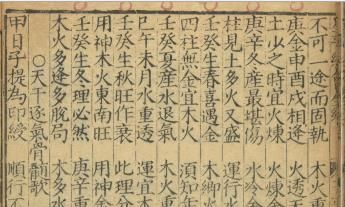 不可一途而固執　木火重
庚金申酉戌相逢　火透
土山之時宜火煉　火煉金
庚辛冬產最堪傷　水冷金
柱見土多火又盛　運行水
壬癸生春喜遇金　木鄉火
四柱無金宜木火　須知年
壬癸身產水退氣　壬癸
巳午未月水重透　運宜木
壬癸生秋旺作衰　此理分
用神木火東南旺　用神金
壬癸生冬理必然　庚辛重
木火多逢多脫局　木多水
○天干逐氣骨髓歌
甲日子提為印綬　順行不